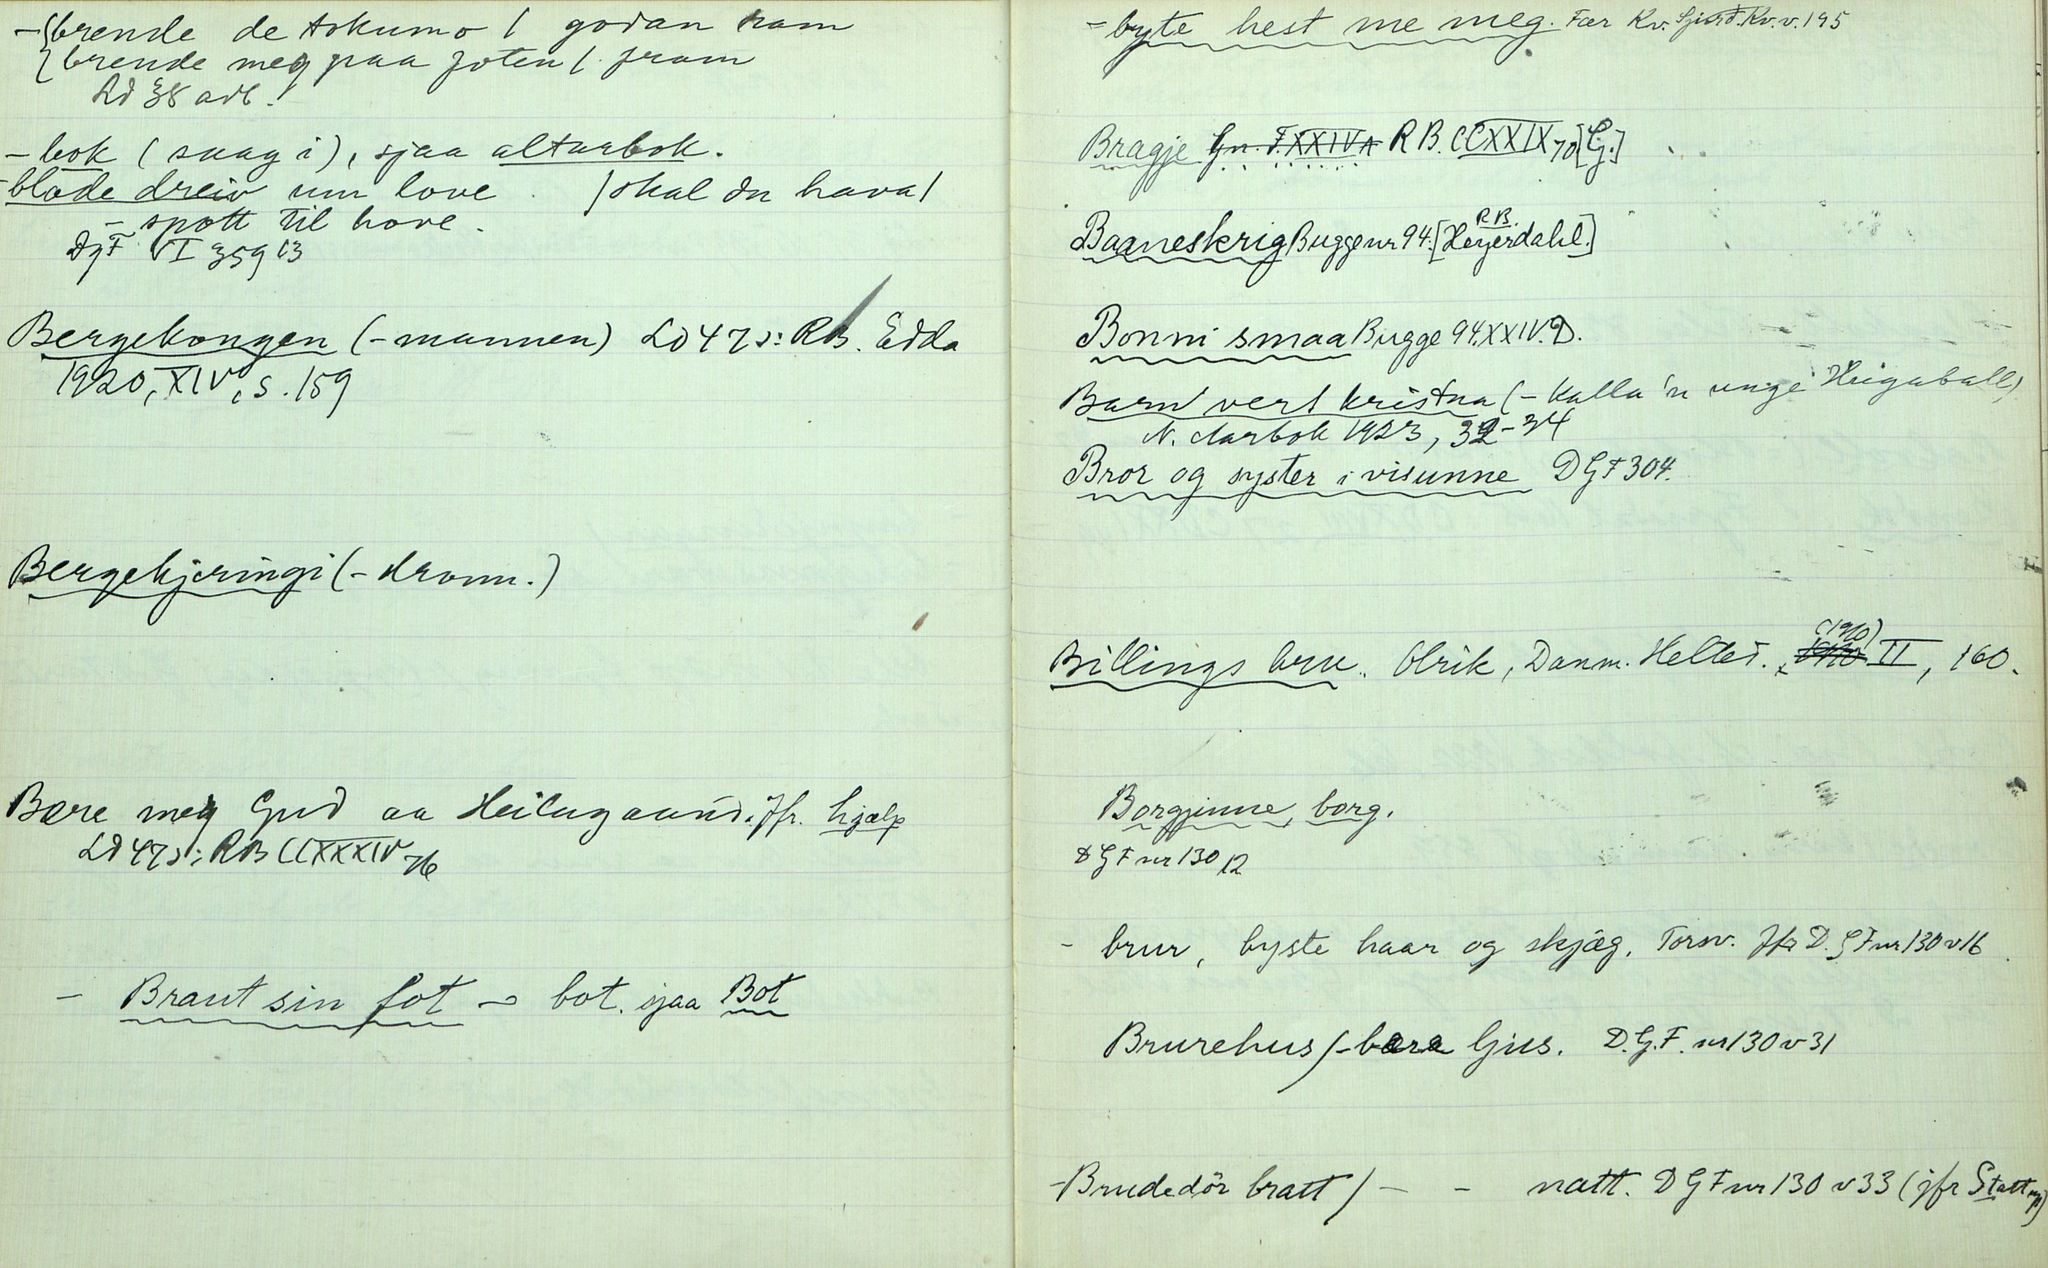 - brende de tokumo / godan ram
brende meg paa foten / fram
Ld 38 adb.
- bok (svag i), sjaa altarbok.
- blode dreiv um love / skal du hava /
- spott til hove.
DgF VI 359 13
Bergekongen (-mannen) Ld 47 s: RB. Edda
1920, XIV, s. 159
Bergekjeringi (- dronn.)
Bere meg Gud aa Heilagaand. Jfr. hjælp
Ld 47 s: RB CCXXXIV 76
- Braut sin fot - bot. sjaa Bot
- byte hest me meg. Fær Kv. Sjurd. Kv. v. 195
Bragje Gn. F. XXIV A RB. CCXXIX 70 [Gj.]
RB.
Baaneskrig Bugge nr 94. [Heyerdahl.]
Bonni smaa Bugge 94. XXIV. D.
Barn vert kristna (- kalla 'n unge Heigaball)
N. Aarbok 1923, 32-34
Bror og syster i visunne DGF 304.
(1910)
Billings bru. Olrik, Danm. Helted. II, 160.
Borgjinne, borg.
DGF nr 130 12
- brur, byste haar og skjæg. Torsv. Jfr D.GF nr 130 v 16
Brurehus / - bera ljus. D.G.F. nr 130 v 31
- Brudedör bratt / - - natt. DGF nr 130 v 33 (jfr Statt up)